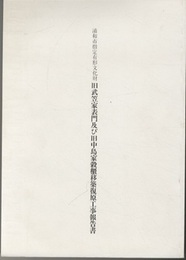 浦和市指定有形文化財
旧武笠家表門及び旧中島家穀櫃移築復原工事報告書